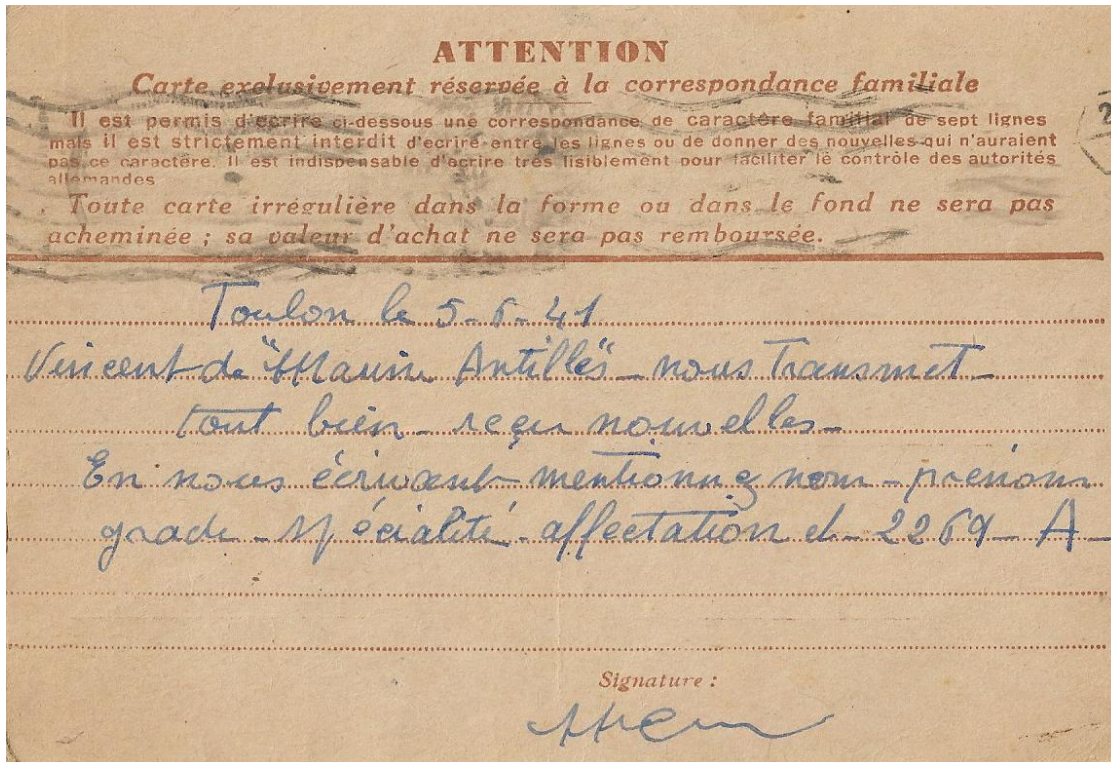 ATTENTION
Carte exclusivement réservée à la correspondance familiale
Il est permis d'ecrire ci-dessous une correspondance de caractère familial de sept lignes
mais il est strictement interdit d'ecrire entre les lignes ou de donner des nouvelles qui n'auraient
pas ce caractère. Il est indispensable d'ecrire très lisiblement pour faciliter le contrôle des autorités
allemandes
Toute carte irrégulière dans la forme ou dans le fond ne sera pas
acheminée ; sa valeur d'achat ne sera pas remboursée.
Toulon le 5-6-41
Vincent de "Marine Antilles" - nous transmet -
tout bien - reçu nouvelles -
En nous écrivant mentionnez nom - prénom
grade - spécialité - affectation et - 2269 - A -
Signature :